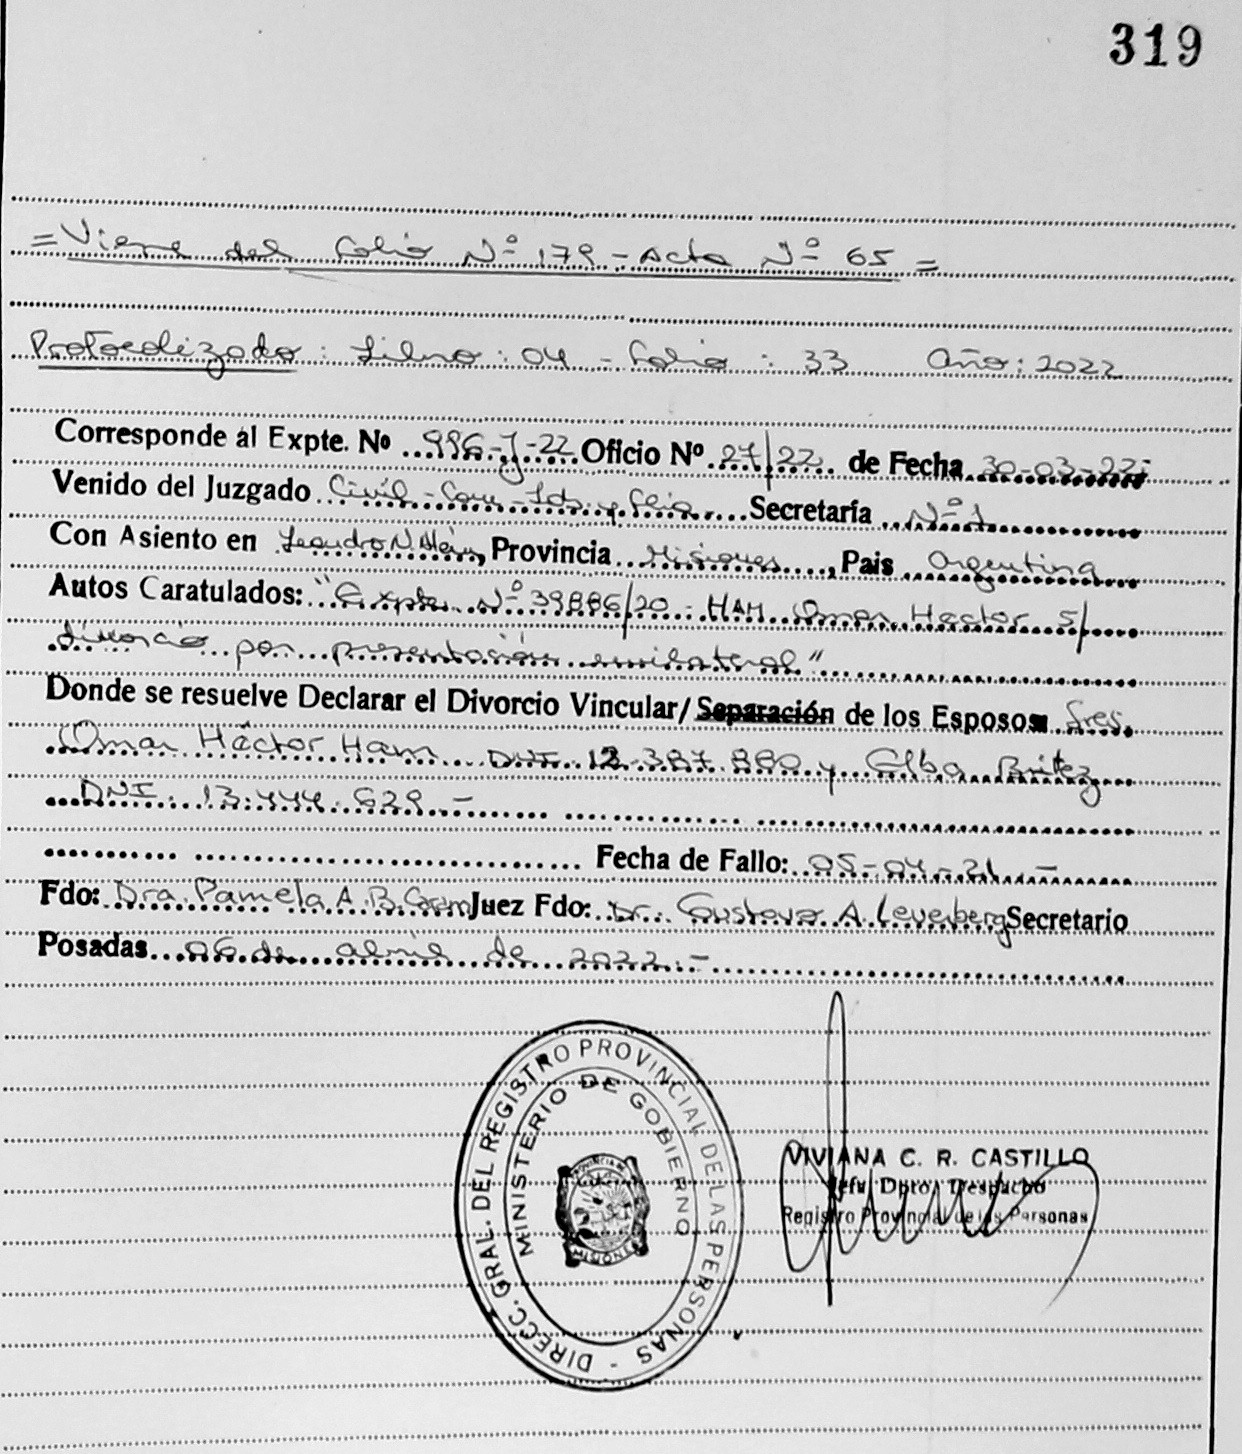 319
=Viene del folio Nº 179 - Acta Nº 65=
Protocolizado: Libro: 04 - Folio: 33 Año: 2022
Corresponde al Expte. Nº 996-J-22 Oficio Nº 27/22 de Fecha 30-03-22
Venido del Juzgado Civil - Com - Lab. y Flia Secretaría Nº 1
Con Asiento en Leandro N. Alem, Provincia Misiones, Pais Argentina
Autos Caratulados: "Expte Nº 39886/20 - HAM Omar Hector S/
divorcio por presentación unilateral"
Donde se resuelve Declarar el Divorcio Vincular/Separación de los Esposos Sres.
Omar Héctor Ham DNI 12.387.880 y Elba Britez
DNI 13.444.629.-
Fecha de Fallo: 05-04-21 -
Fdo: Dra. Pamela A. B. Juez Fdo: Dr. Gustavo A. Leverberg Secretario
Posadas 06 de abril de 2022.-
DIRECC. GRAL. DEL REGISTRO PROVINCIAL DE LAS PERSONAS -
MINISTERIO DE GOBIERNO
PROVINCIA DE
MISIONES
VIVIANA C. R. CASTILLO
Jefa Dpto. Despacho
Registro Provincial de las Personas